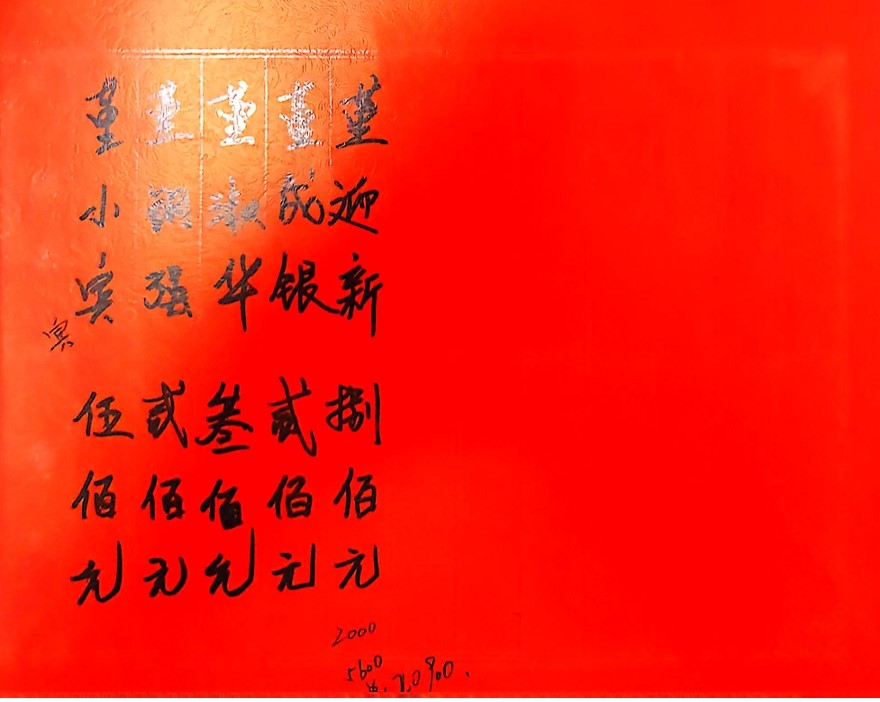 董迎新捌佰元
董成银贰佰元
董淑华叁佰元
董强贰佰元
董小宾伍佰元
宾
2000
5600